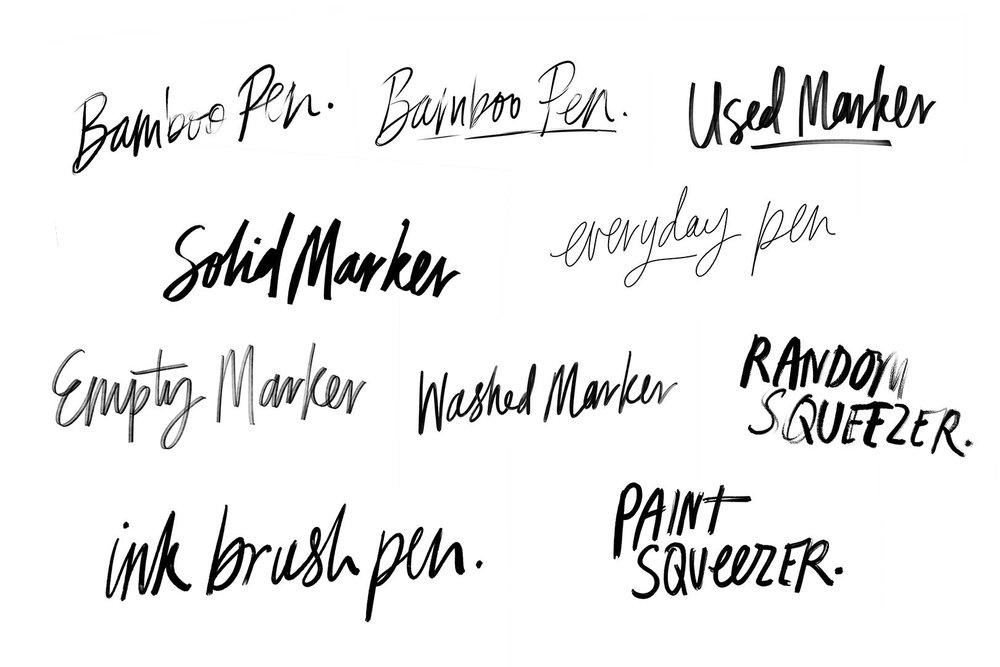 Bamboo Pen.
Bamboo Pen.
Used Marker
Solid Marker
everyday pen
Empty Marker
Washed Marker
RANDOM
SQUEEZER.
ink brush pen.
PAINT
SQUeeZER.